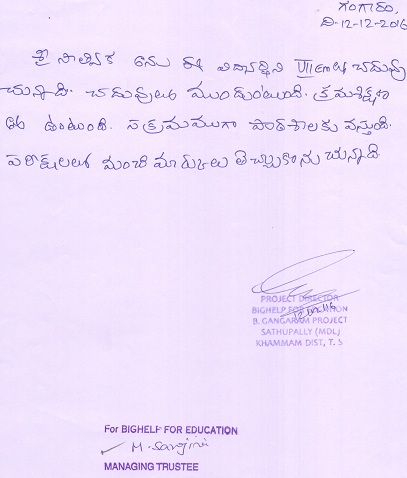 గంగారం,
ది-12-12-2016
ఈ విద్యార్థిని VII class చదువు
చున్నాది. చదువులో ముందుంటుంది. క్రమశిక్షణ
ఉంటుంది. సక్రమముగా పాఠశాలకు వస్తుంది.
పరీక్షలలో మంచి మార్కులు తెచ్చుకొనుచున్నాది
PROJECT DIRECTOR
BIGHELP FOR EDUCATION
B. GANGARAM PROJECT
SATHUPALLY (MDL)
KHAMMAM DIST, T. S
For BIGHELP FOR EDUCATION
M. Sarojini
MANAGING TRUSTEE